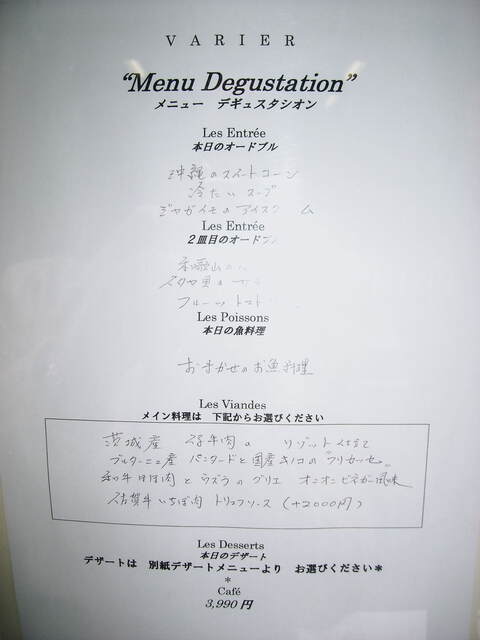 VARIER
“Menu Degustation”
メニュー　デギュスタシオン
Les Entrée
本日のオードブル
沖縄のスイートコーン
冷たいスープ
ジャガイモのアイスク　ム
Les Entrée
２皿目のオードブル
和歌山の
イタヤ貝の
フルーツトマト
Les Poissons
本日の魚料理
おまかせのお魚料理
Les Viandes
メイン料理は　下記からお選びください
茨城産　仔牛肉の　リゾット仕立て
ブルターニュ産　パンタードと国産キノコの"フリカッセ"
和牛ホホ肉とウズラのグリエ　オニオンビネガー風味
佐賀牛いちぼ肉　トリュフソース　(+2000円)
Les Desserts
本日のデザート
デザートは　別紙デザートメニューより　お選びください＊
＊
Café
3,990 円